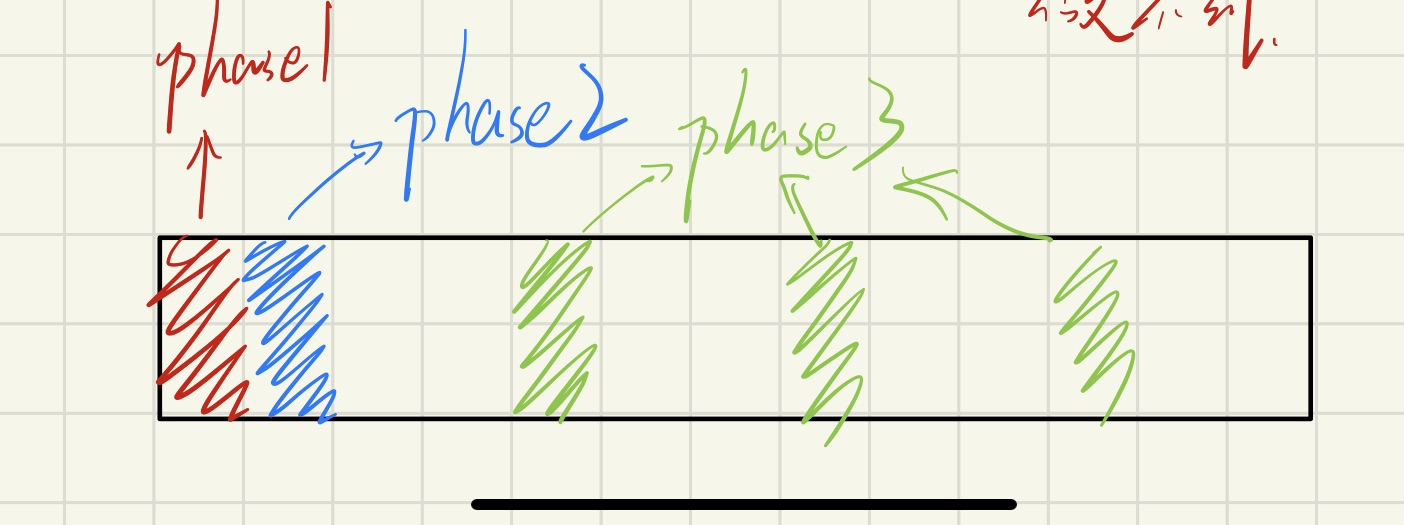 phase1
phase2
phase3